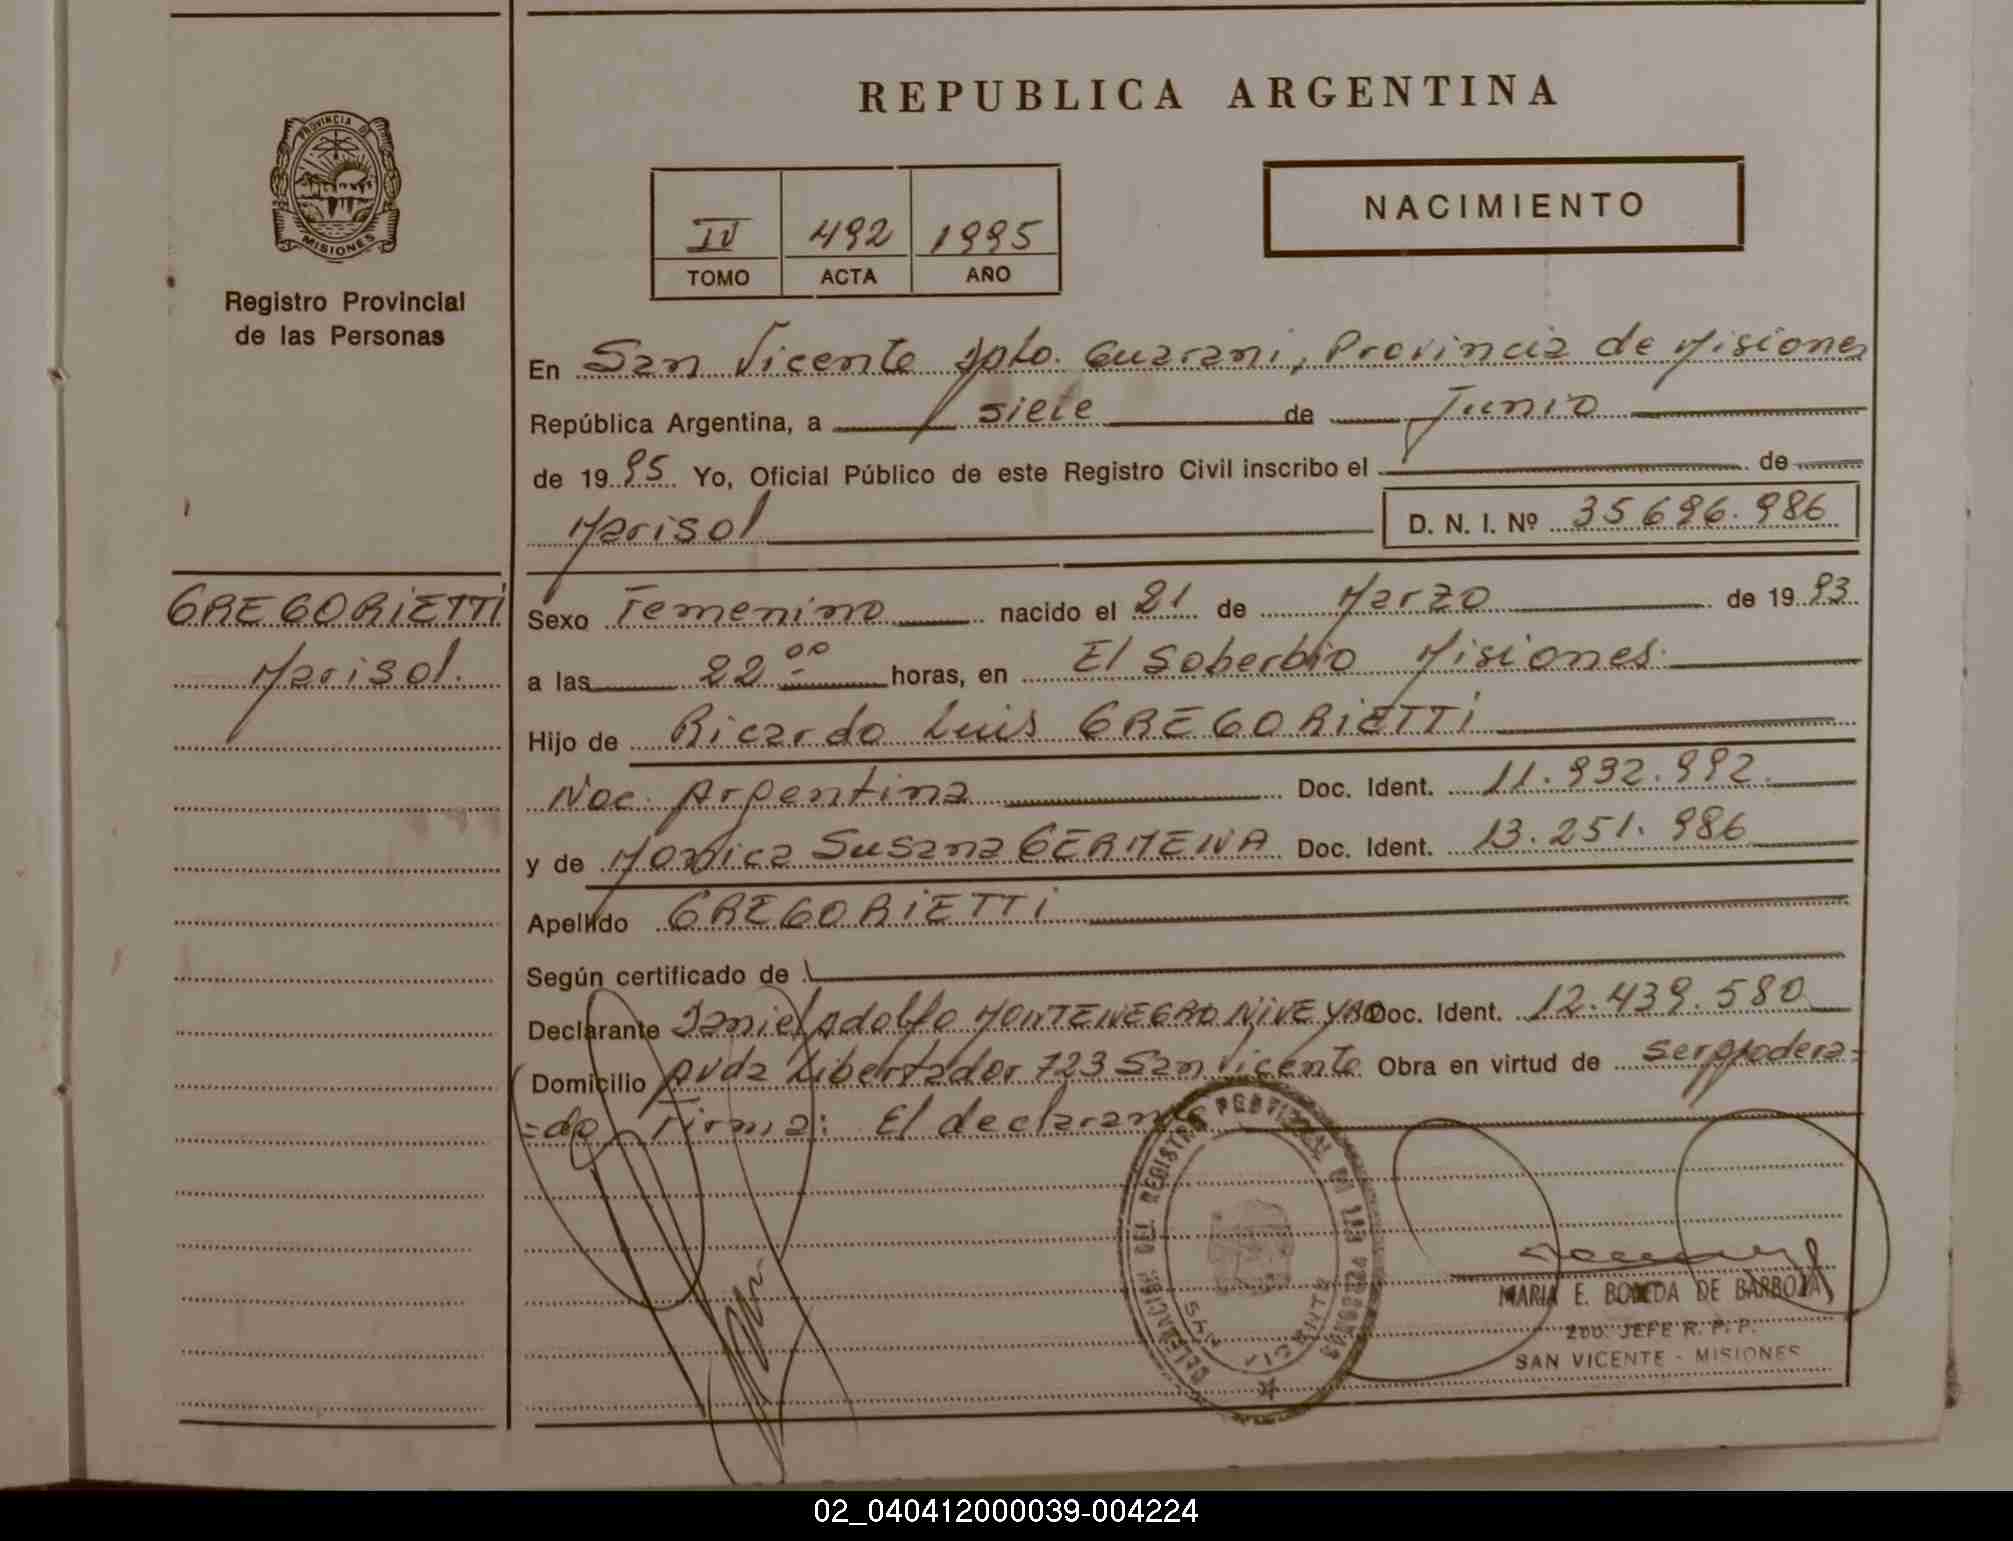 REPUBLICA ARGENTINA
PROVINCIA DE
MISIONES
Registro Provincial
de las Personas
NACIMIENTO
IV 492 1995
TOMO ACTA AÑO
En San Vicente Dpto. Guarani, Provincia de Misiones
República Argentina, a siete de Junio
de 1995 Yo, Oficial Público de este Registro Civil inscribo el de
Marisol D. N. I. Nº 35696.986
GREGORIETTI
Marisol.
Sexo Femenino nacido el 21 de Marzo de 1993
a las 22 00 horas, en El Soberbio Misiones
Hijo de Ricardo Luis GREGORIETTI
Nac. Argentina Doc. Ident. 11.932.992
y de Monica Susana GERMENA Doc. Ident. 13.251.986
Apellido GREGORIETTI
Según certificado de
Declarante Daniel Adolfo MONTENEGRO NiVEYRO Doc. Ident. 12.439.580
Domicilio Avda Libertador 723 San Vicente Obra en virtud de ser apodera=
=do Firma: El declarante
DELEGACION DEL REGISTRO PROVINCIAL DE LAS PERSONAS
SAN VICENTE
MARIA E. DE BARBOZA
2DO. JEFE R. P. P.
SAN VICENTE - MISIONES
02_040412000039-004224